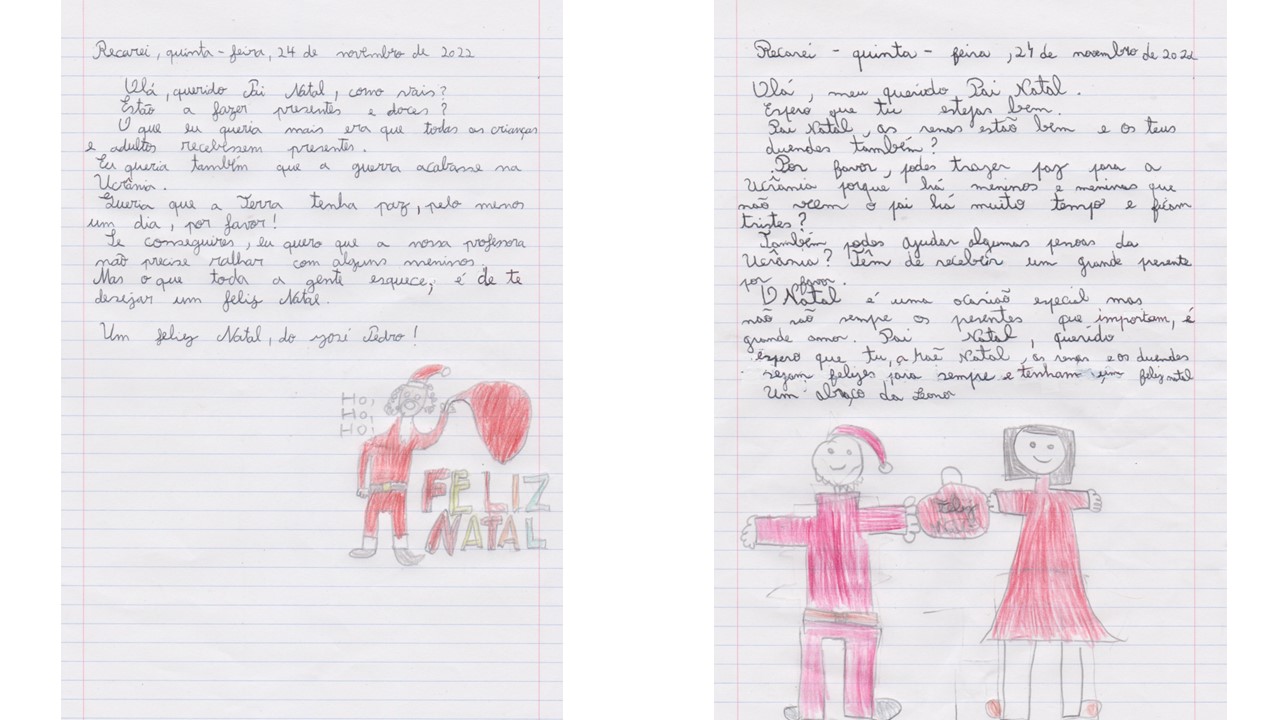 Recarei, quinta-feira, 24 de novembro de 2022
Olá, querido Pai Natal, como vais?
Estão a fazer presentes e doces?
O que eu queria mais era que todas as crianças
e adultos recebessem presentes.
Eu queria também que a guerra acabasse na
Ucrânia.
Queria que a Terra tenha paz, pelo menos
um dia, por favor!
Se conseguires, eu quero que a nossa professora
não precise ralhar com alguns meninos.
Mas o que toda a gente esquece, é de te
desejar um feliz Natal.
Um feliz Natal, do José Pedro!
HO,
HO,
HO!
FELIZ
NATAL
Recarei - quinta - feira, 24 de novembro de 2022
Olá, meu querido Pai Natal.
Espero que tu estejas bem.
Pai Natal as renas estão bem e os teus
duendes também?
Por favor, podes trazer paz para a
Ucrânia porque há meninos e meninas que
não veem o pai há muito tempo e ficam
tristes?
Também podes ajudar algumas pessoas da
Ucrânia? Têm de receber um grande presente
por favor.
O Natal é uma ocasião especial mas
não são sempre os presentes que importam, é
grande amor. Pai Natal, querido
espero que tu, a Mãe Natal, as renas e os duendes
sejam felizes para sempre e tenham um feliz natal
Um abraço da Leonor
Feliz